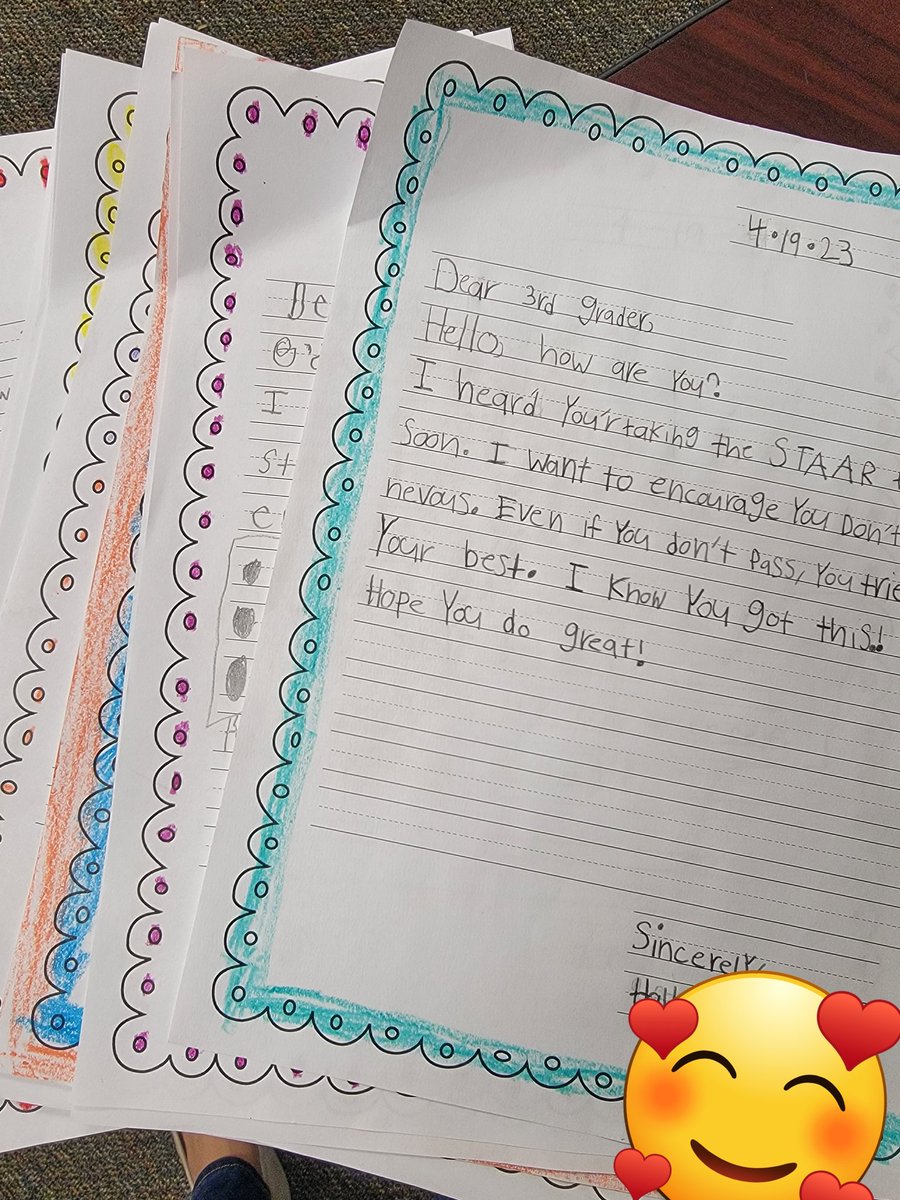 4.19.23
Dear 3rd grader,
Hello, how are you?
I heard You'r taking the STAAR
soon. I want to encourage You Don't
nevous. Even if You don't pass, You trie
Your best. I know You got this!
Hope You do great!
Sincerely,
De
I
st
e